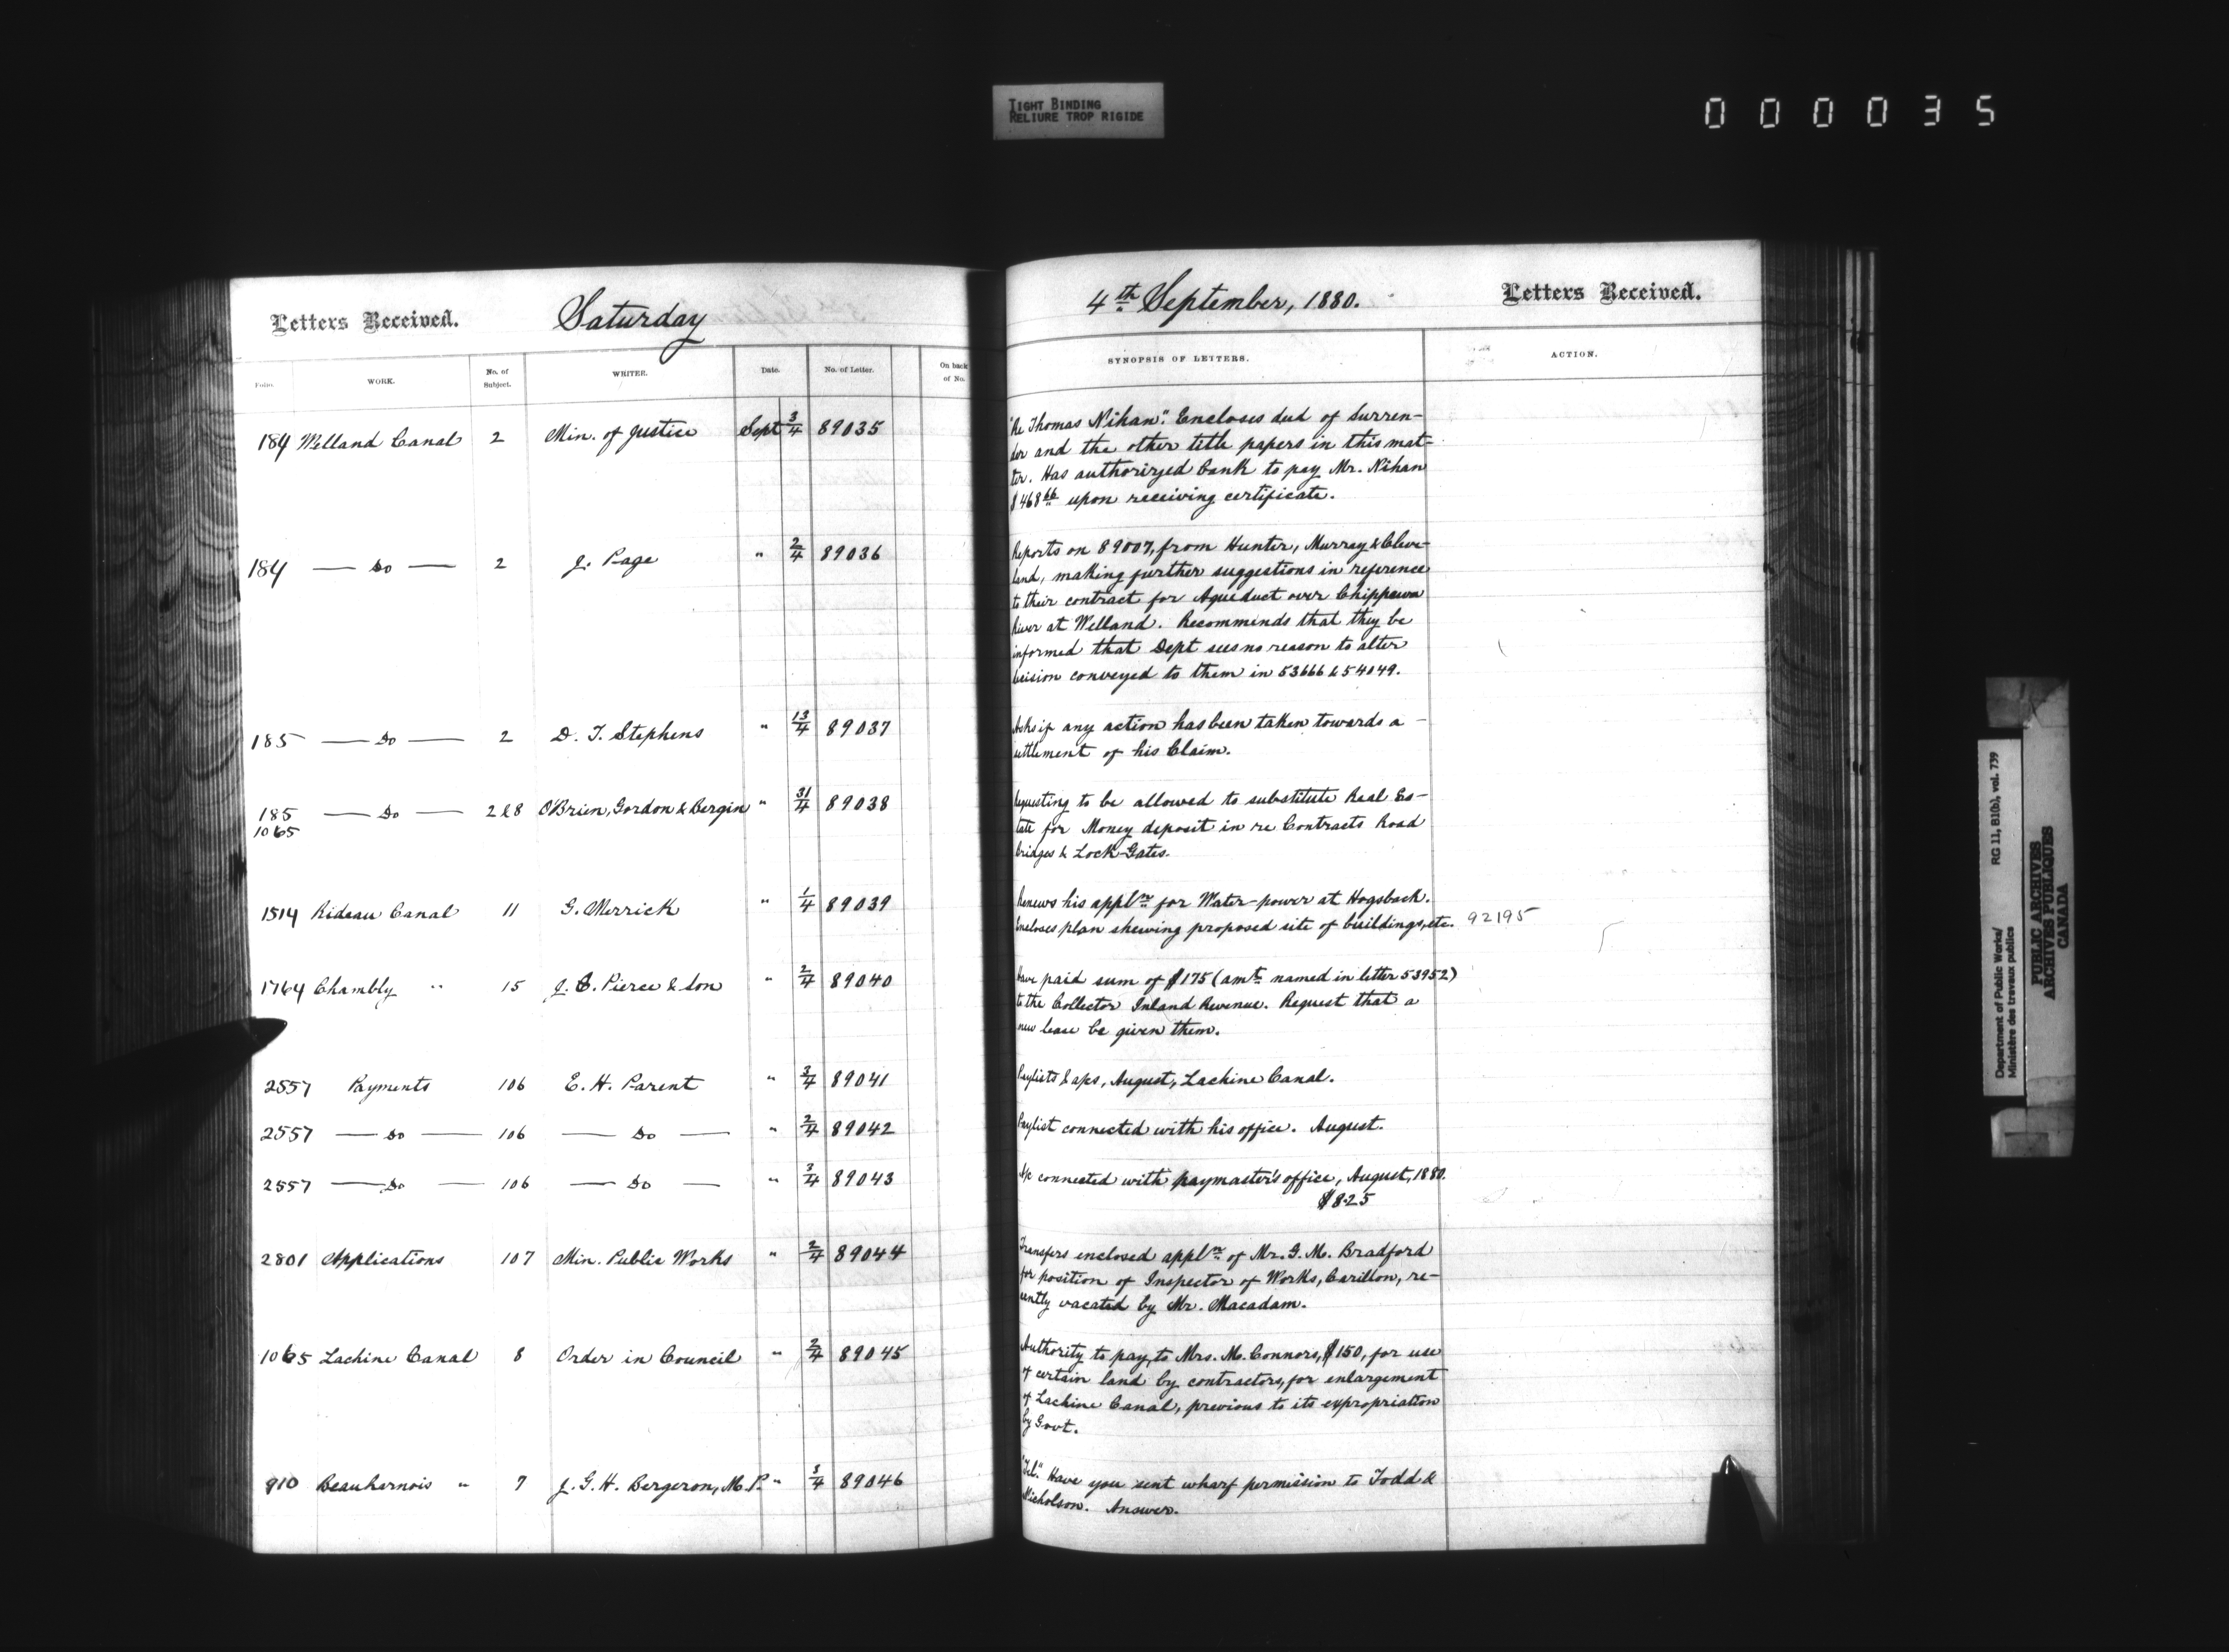 TIGHT BINDING
RELIURE TROP RIGIDE
000035
Letters Received.
Saturday
4th September, 1880.
Letters Received.
Folio. WORK. No. of Subject. WRITER. Date. No. of Letter. On back of No.
SYNOPSIS OF LETTERS. ACTION.
184 Welland Canal 2 Min. of Justice Sept 3/4 89035
"Re Thomas Nihan". Encloses deed of Surren-
der and the other title papers in this mat-
ter. Has authorized bank to pay Mr. Nihan
$468 66 upon receiving certificate.
184 — Do — 2 J. Page " 2/4 89036
Reports on 89007, from Hunter, Murray & Cleve-
land, making further suggestions in reference
to their contract for Aqueduct over Chippawa
River at Welland. Recommends that they be
informed that Dept sees no reason to alter
decision conveyed to them in 53666 & 54049.
185 — Do — 2 D. T. Stephens " 13/4 89037
Asks if any action has been taken towards a
settlement of his Claim.
185 — Do — 2 & 8 O'Brien, Gordon & Bergin " 31/4 89038
1065
Requesting to be allowed to substitute Real Es-
tate for Money deposit in re Contracts Road
bridges & Lock-Gates.
1514 Rideau Canal 11 G. Merrick " 1/4 89039
Renews his appln for Water-power at Hogsback.
Encloses plan shewing proposed site of buildings, etc. 92195
1764 Chambly " 15 J. S. Pierce & Son " 2/4 89040
Have paid sum of $175 (amt named in letter 53952)
to the Collector Inland Revenue. Request that a
new lease be given them.
2557 Payments 106 E. H. Parent " 3/4 89041
Paylists & a/cs, August, Lachine Canal.
2557 — Do — 106 — Do — " 2/4 89042
Paylist connected with his office. August.
2557 — Do — 106 — Do — " 3/4 89043
A/c connected with paymaster's office, August, 1880.
$8.25
2801 Applications 107 Min. Public Works " 2/4 89044
Transfers enclosed appln of Mr. G. M. Bradford
for position of Inspector of Works, Carillon, re-
cently vacated by Mr. Macadam.
1065 Lachine Canal 8 Order in Council " 2/4 89045
Authority to pay, to Mrs. M. Connors, $150, for use
of certain land by contractors, for enlargement
of Lachine Canal, previous to its expropriation
by Govt.
910 Beauharnois " 7 J. G. H. Bergeron, M.P. " 3/4 89046
"Tel." Have you sent wharf permission to Todd &
Nicholson. Answer.
Department of Public Works/ RG 11, B1(b), vol. 739
Ministère des travaux publics
PUBLIC ARCHIVES
ARCHIVES PUBLIQUES
CANADA